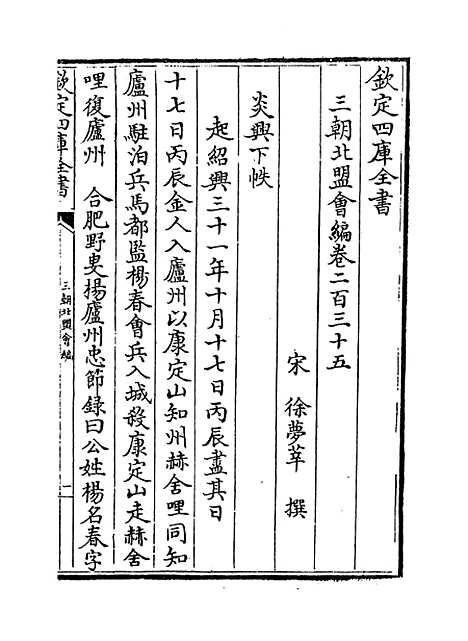 欽定四庫全書
三朝北盟會編卷二百三十五
宋 徐夢莘 撰
炎興下帙
起紹興三十一年十月十七日丙辰盡其日
十七日丙辰金人入廬州以康定山知州赫舍哩同知
廬州駐泊兵馬都監楊春會兵入城殺康定山走赫舍
哩復廬州 合肥野叟揚廬州忠節錄曰公姓楊名春字
欽定四庫全書
三朝北盟會編
一